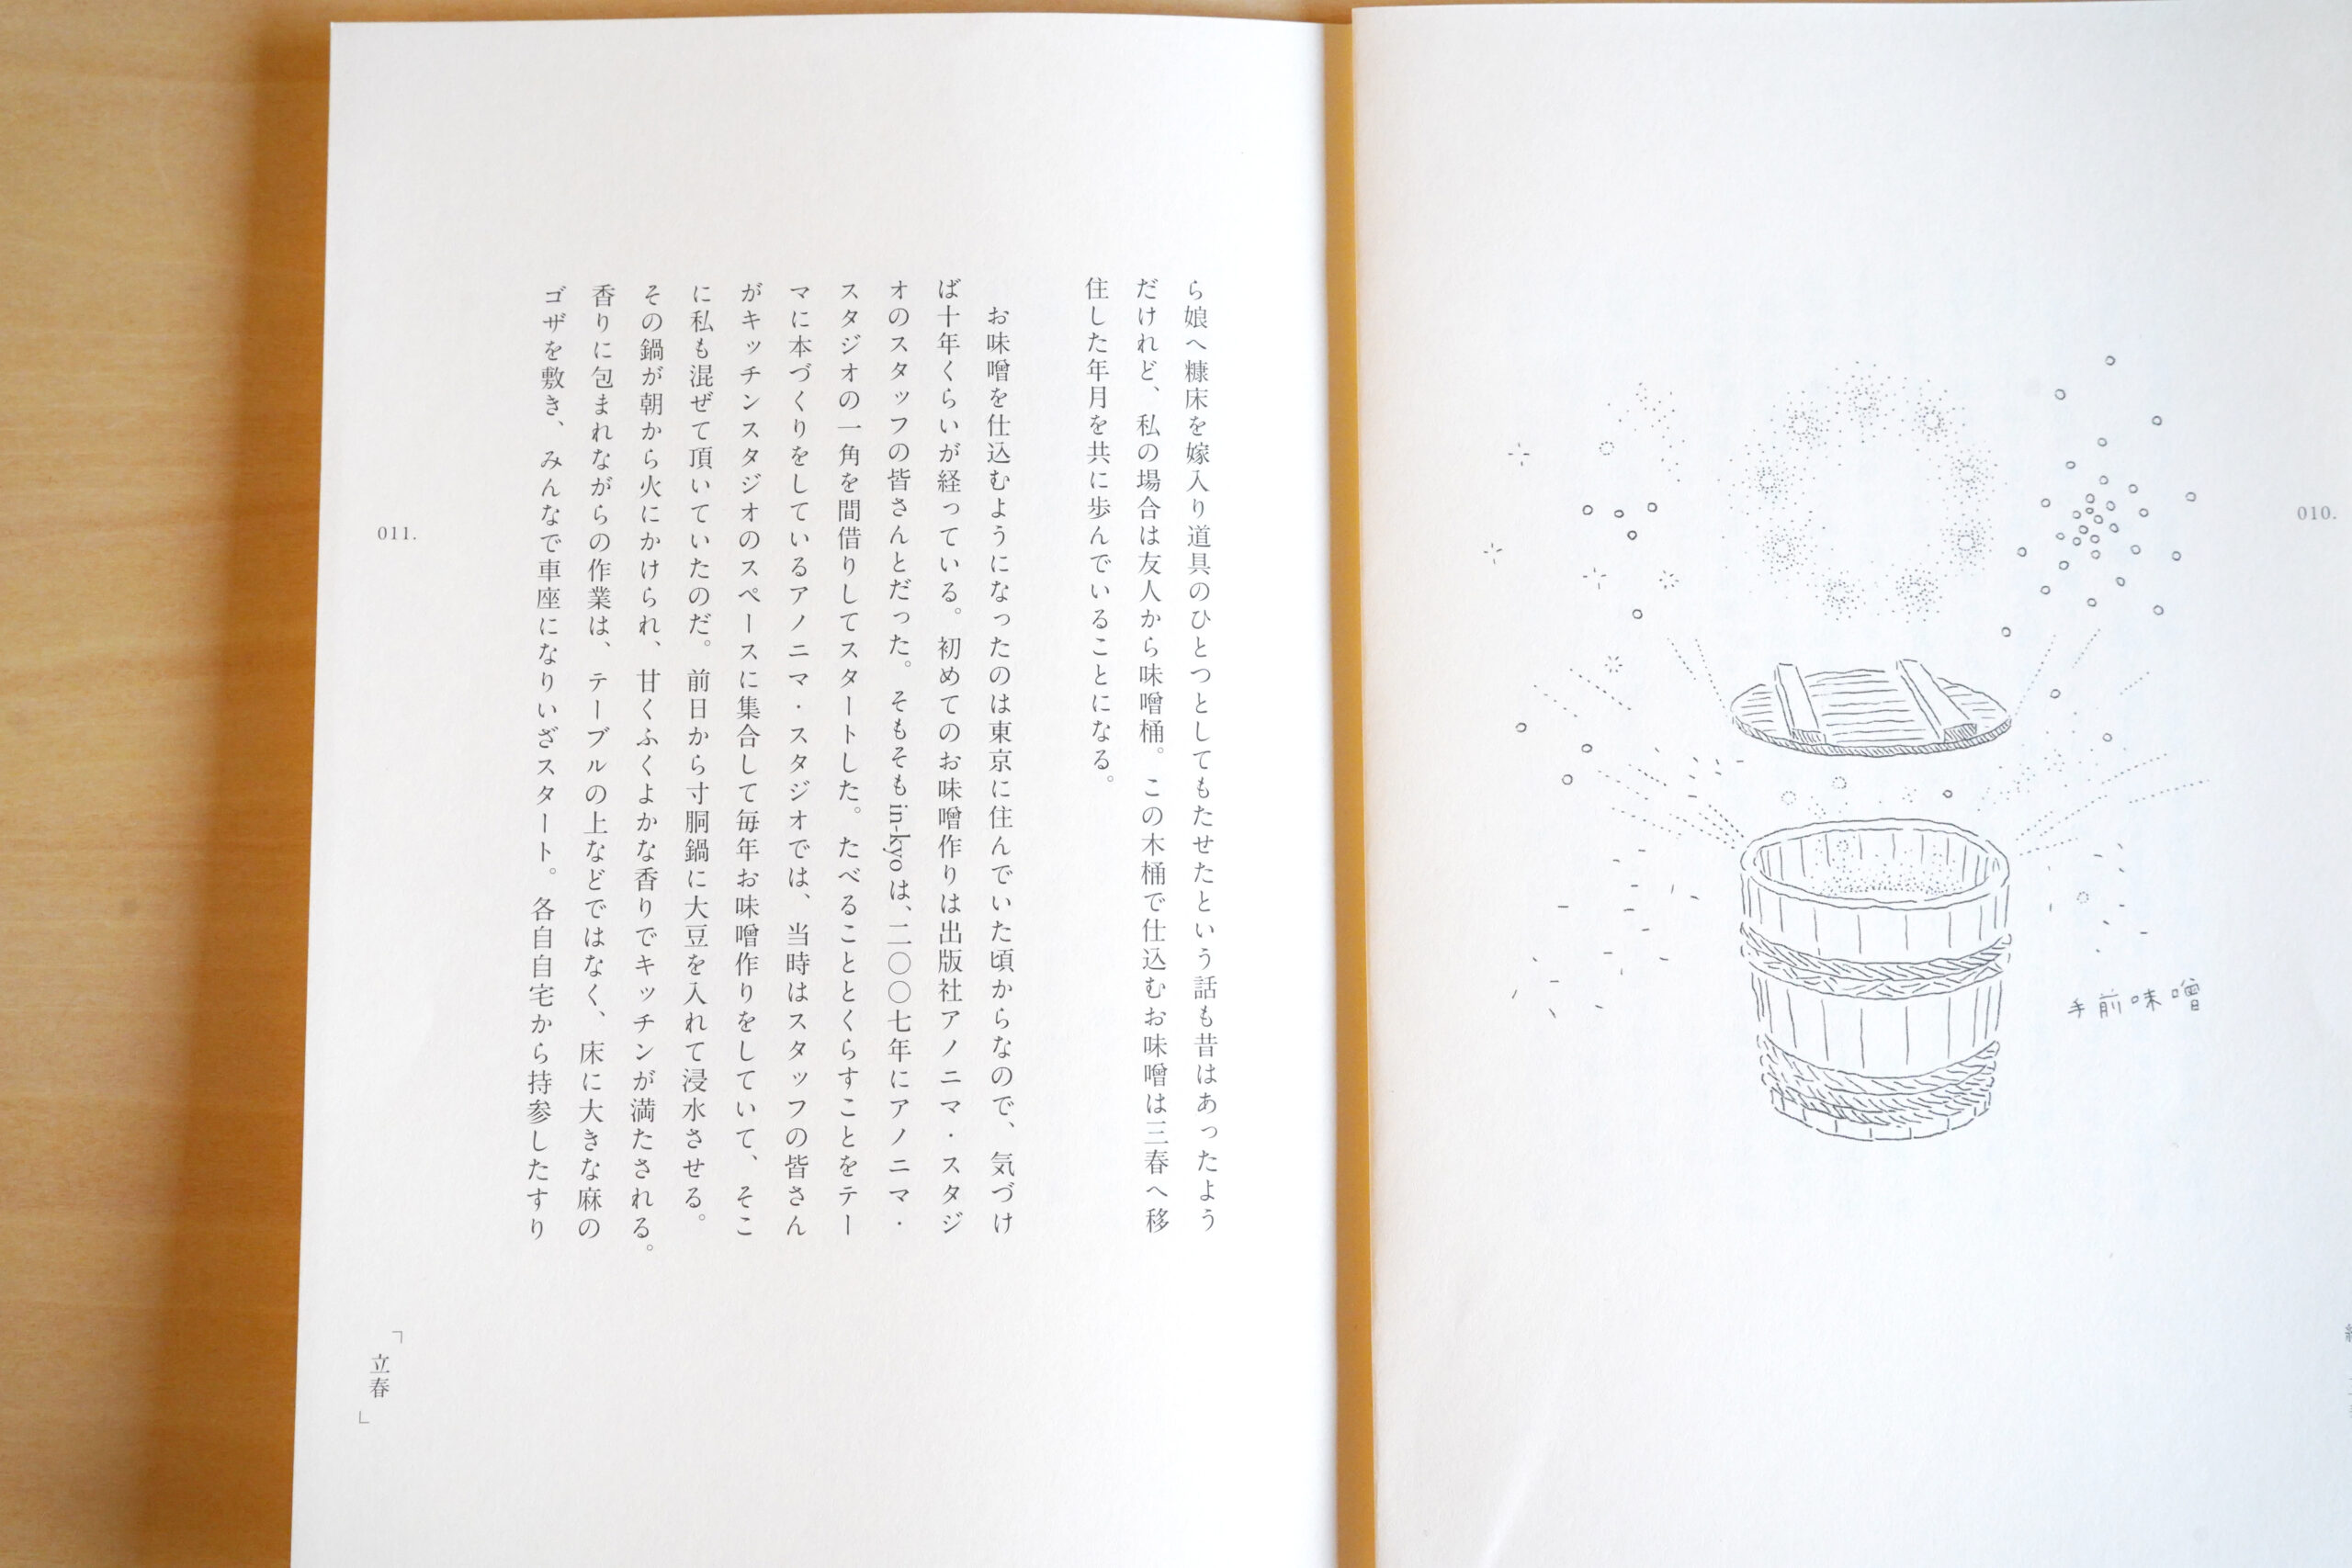 010.
手前味噌
ら娘へ糠床を嫁入り道具のひとつとしてもたせたという話も昔はあったよう
だけれど、私の場合は友人から味噌桶。この木桶で仕込むお味噌は三春へ移
住した年月を共に歩んでいることになる。
お味噌を仕込むようになったのは東京に住んでいた頃からなので、気づけ
ば十年くらいが経っている。初めてのお味噌作りは出版社アノニマ・スタジ
オのスタッフの皆さんとだった。そもそもin-kyoは、二〇〇七年にアノニマ・
スタジオの一角を間借りしてスタートした。たべることとくらすことをテー
マに本づくりをしているアノニマ・スタジオでは、当時はスタッフの皆さん
がキッチンスタジオのスペースに集合して毎年お味噌作りをしていて、そこ
に私も混ぜて頂いていたのだ。前日から寸胴鍋に大豆を入れて浸水させる。
その鍋が朝から火にかけられ、甘くふくよかな香りでキッチンが満たされる。
香りに包まれながらの作業は、テーブルの上などではなく、床に大きな麻の
ゴザを敷き、みんなで車座になりいざスタート。各自自宅から持参したすり
011.
「立春」